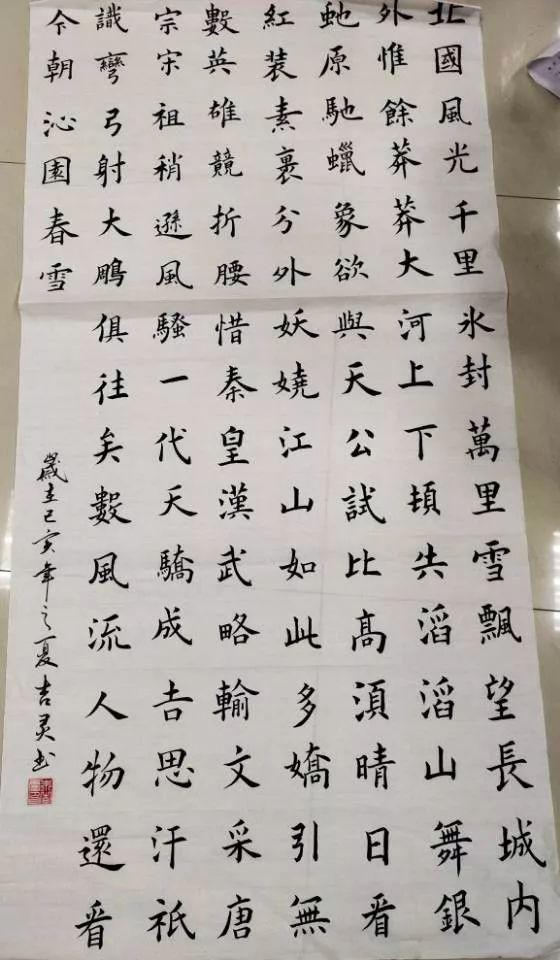 北國風光千里氷封萬里雪飄望長城内
外惟餘莽莽大河上下頓失滔滔山舞銀
虵原馳蠟象欲與天公試比高須晴日看
紅装素裹分外妖嬈江山如此多嬌引無
數英雄競折腰惜秦皇漢武略輸文采唐
宗宋祖稍遜風騷一代天驕成吉思汗祇
識彎弓射大鵰俱往矣數風流人物還看
今朝沁園春雪
歲在己亥年之夏吉灵书